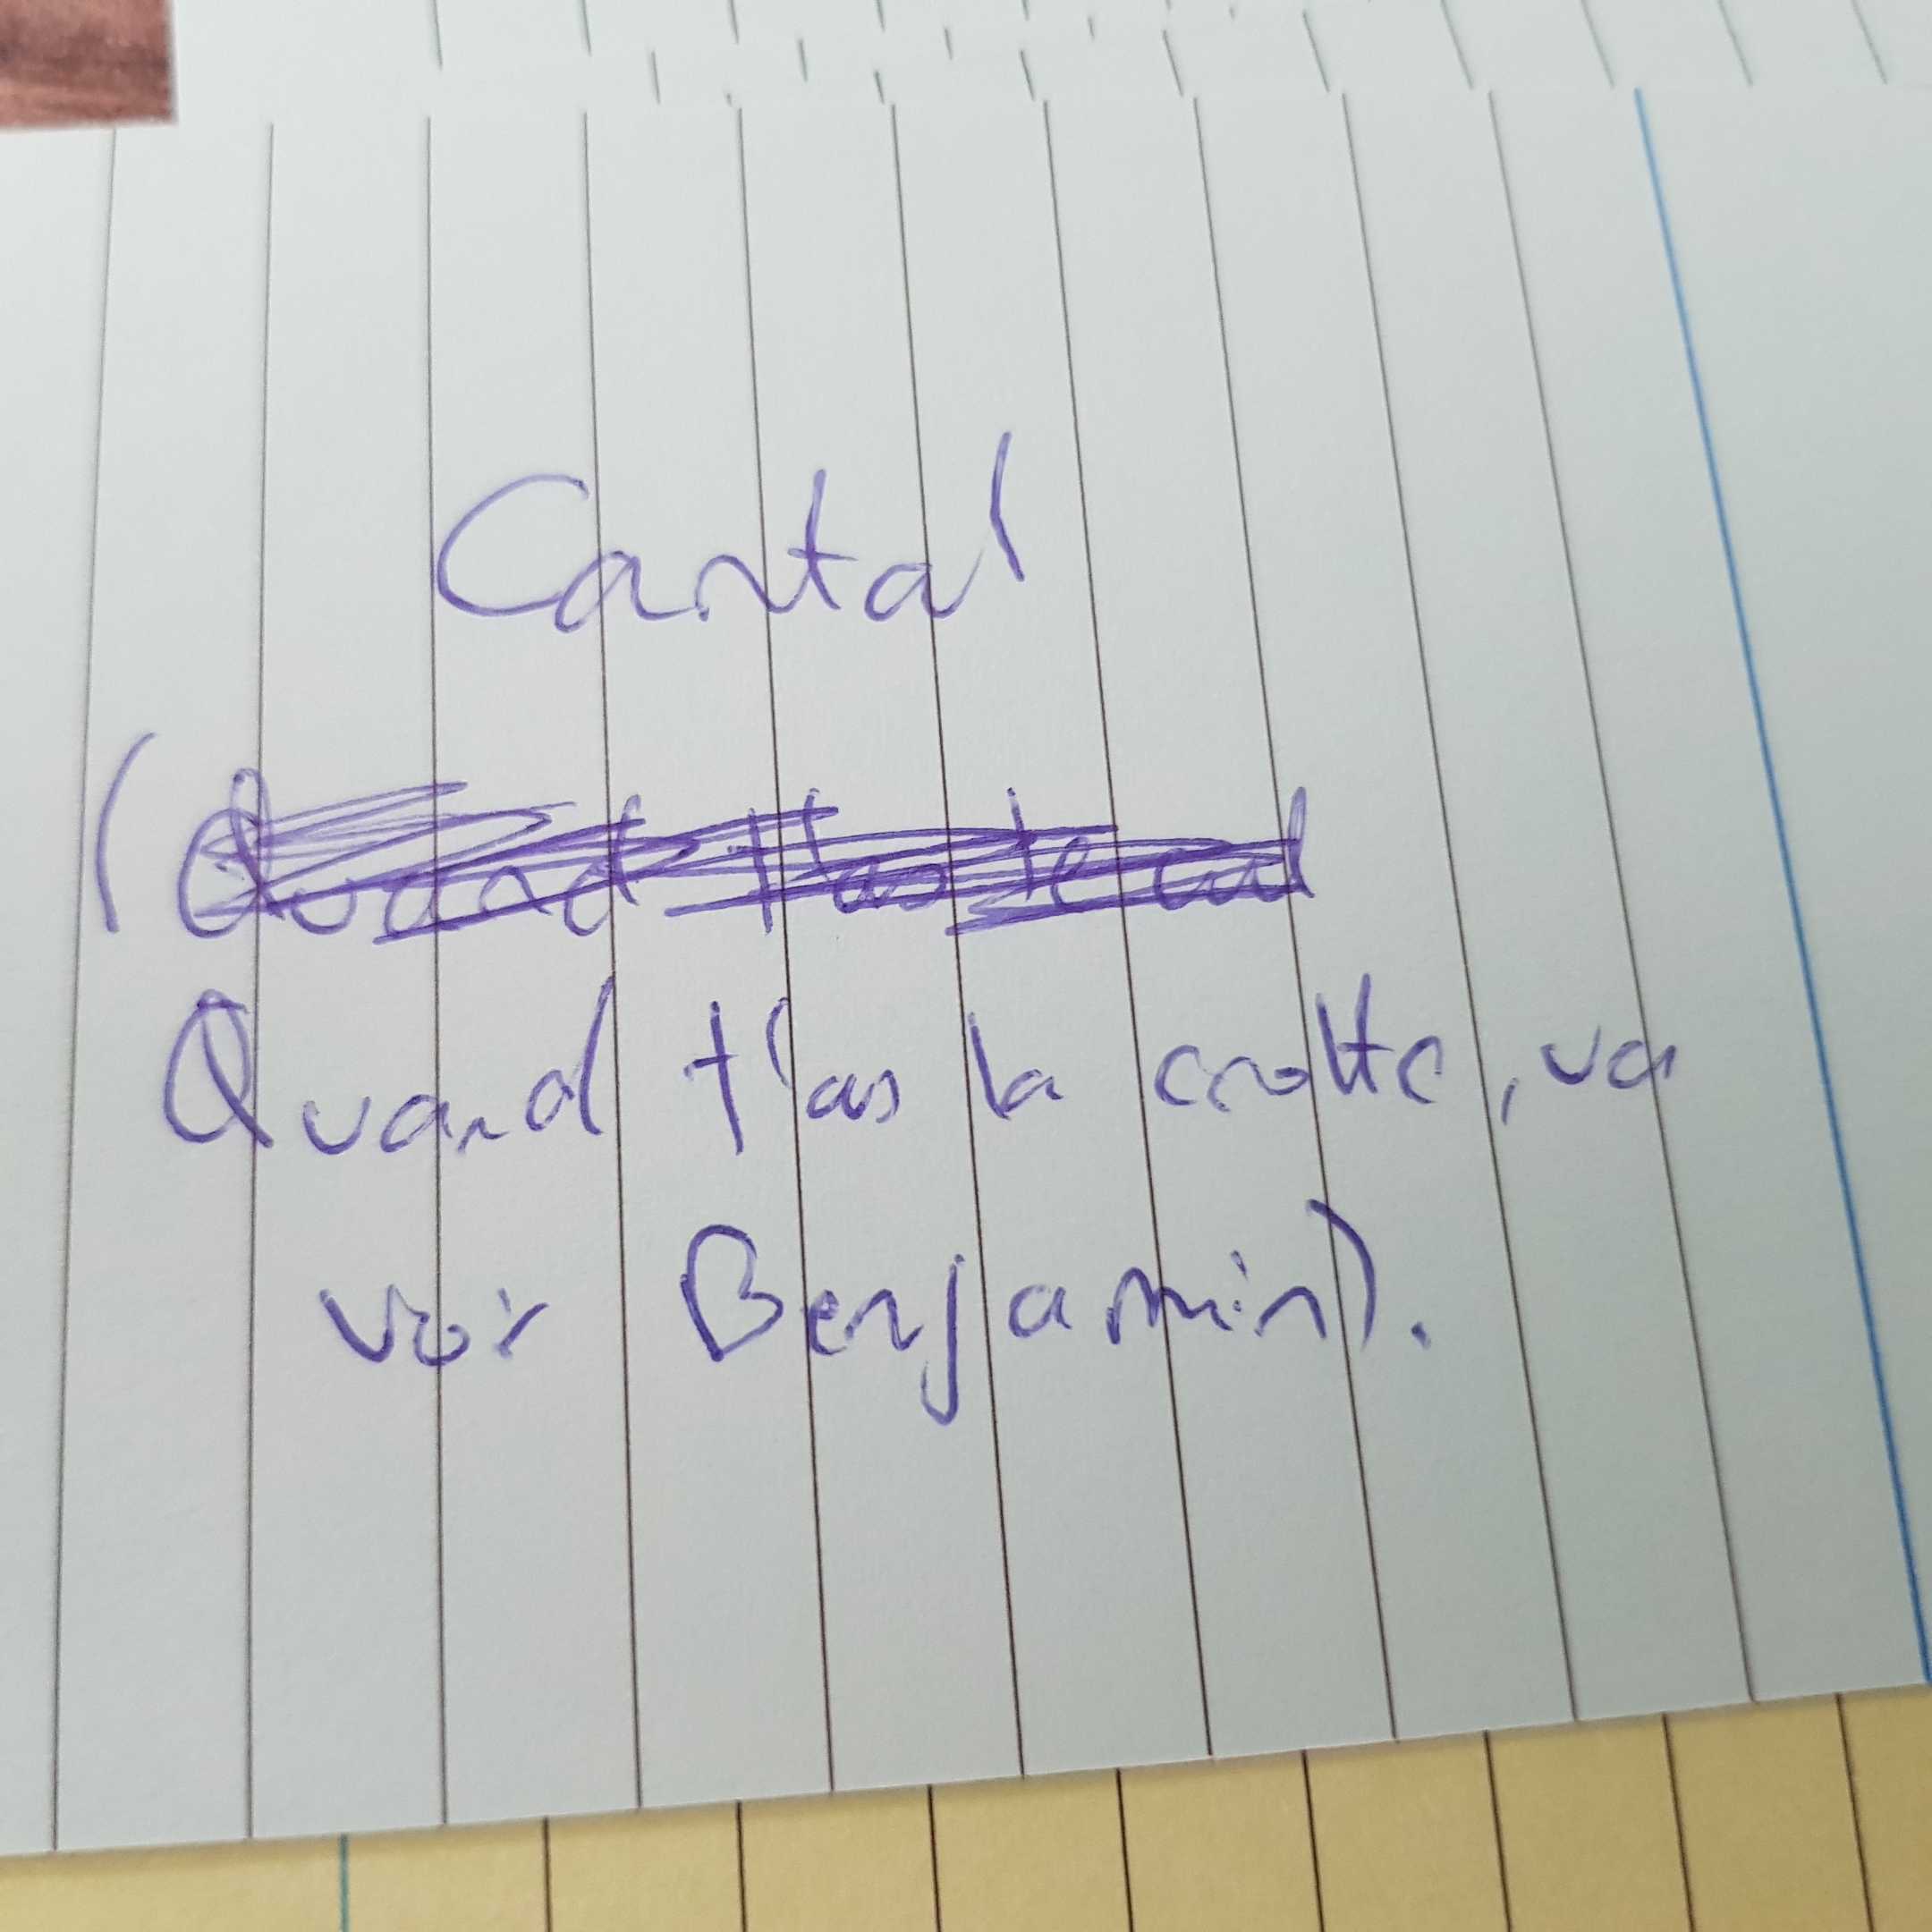 Cantal
(Quand t'as le cul
Quand t'as la crotte, va
voir Benjamin).